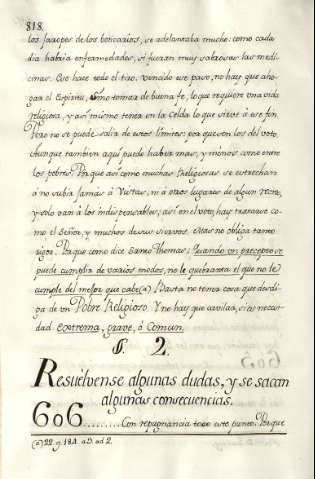 818.
los Jaropes de los boticarios, se adelantaba mucho: como cada
dia habria enfermedades, si fuesen muy sabrosas las medi-
cinas. Que hace todo el tiro. Vencido ese paso, no hay que aho-
gar el Espiritu, sino tomar de buena fe, lo que requiere una vida
religiosa, y asi mismo tener en la Celda lo que sirve á ese fin.
Pero no se puede salir de estos limites; porque son los del voto.
Aunque tambien aqui puede haber mas, y menos: como entre
los pobres. Porque asi como muchas Religiosas se estrechan
á no subir jamás á Vistas, ni á otros lugares de algun recreo,
y solo van á los indispensables; asi en el voto, hay traerse co-
mo el Señor, y muchos de sus siervos. Mas no obliga tanto
rigor. Porque como dice Santo Thomas: Quando un precepto se
puede cumplir de varios modos, no le quebranta el que no le
cumple del mejor que cabe (a). Basta no tener cosa que desdi-
ga de un Pobre Religioso. Y no hay que cavilar, si es neces-
dad Extrema, grave, ó Comun.
§. 2.
Resuelvense algunas dudas, y se sacan
algunas consecuencias.
606......... Con repugnancia toco este punto. Porque
(a) 22. q. 184. a 3. ad 2.